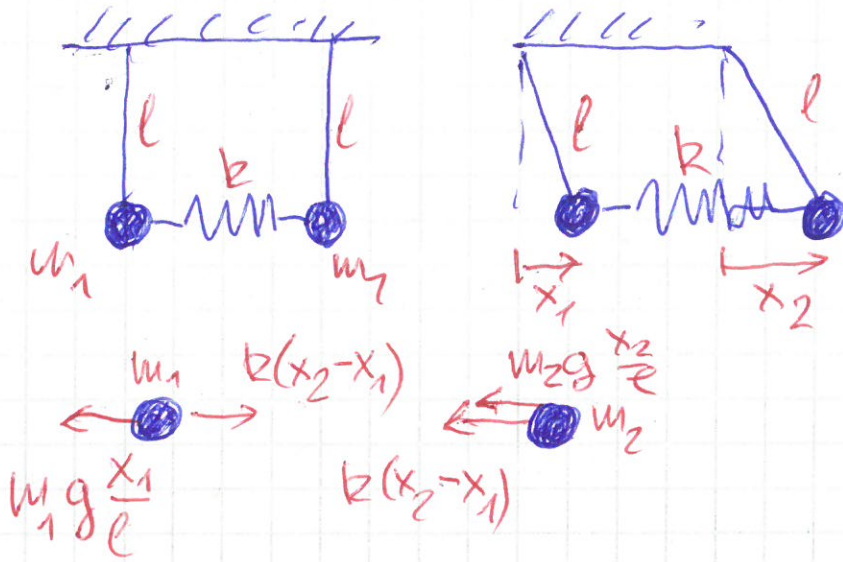 l l
k
m₁ m₁
l l
k
x₁ x₂
m₁ k(x₂-x₁)
m₁g x₁/l
m₂g x₂/l
m₂
k(x₂-x₁)